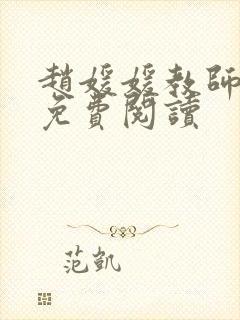 趙媛媛教師
免費閱讀
范凱